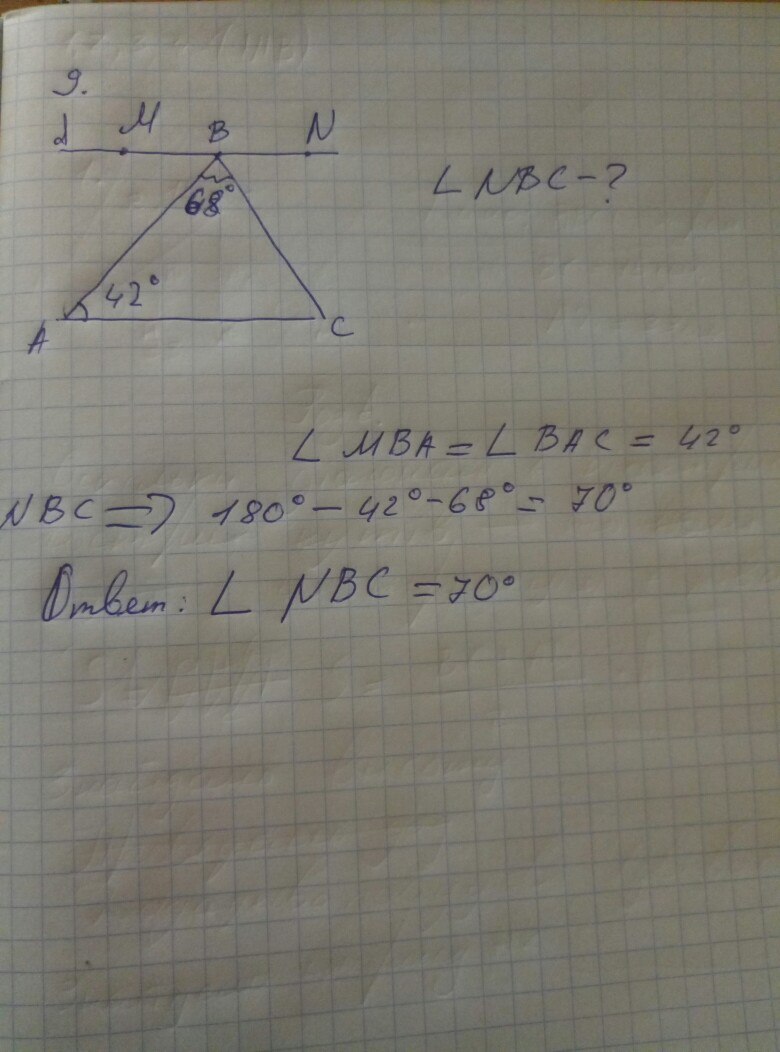 9.
d M B N
∠ NBC - ?
68°
42°
A C
∠ MBA = ∠ BAC = 42°
NBC ⇒ 180° - 42° - 68° = 70°
Ответ: ∠ NBC = 70°